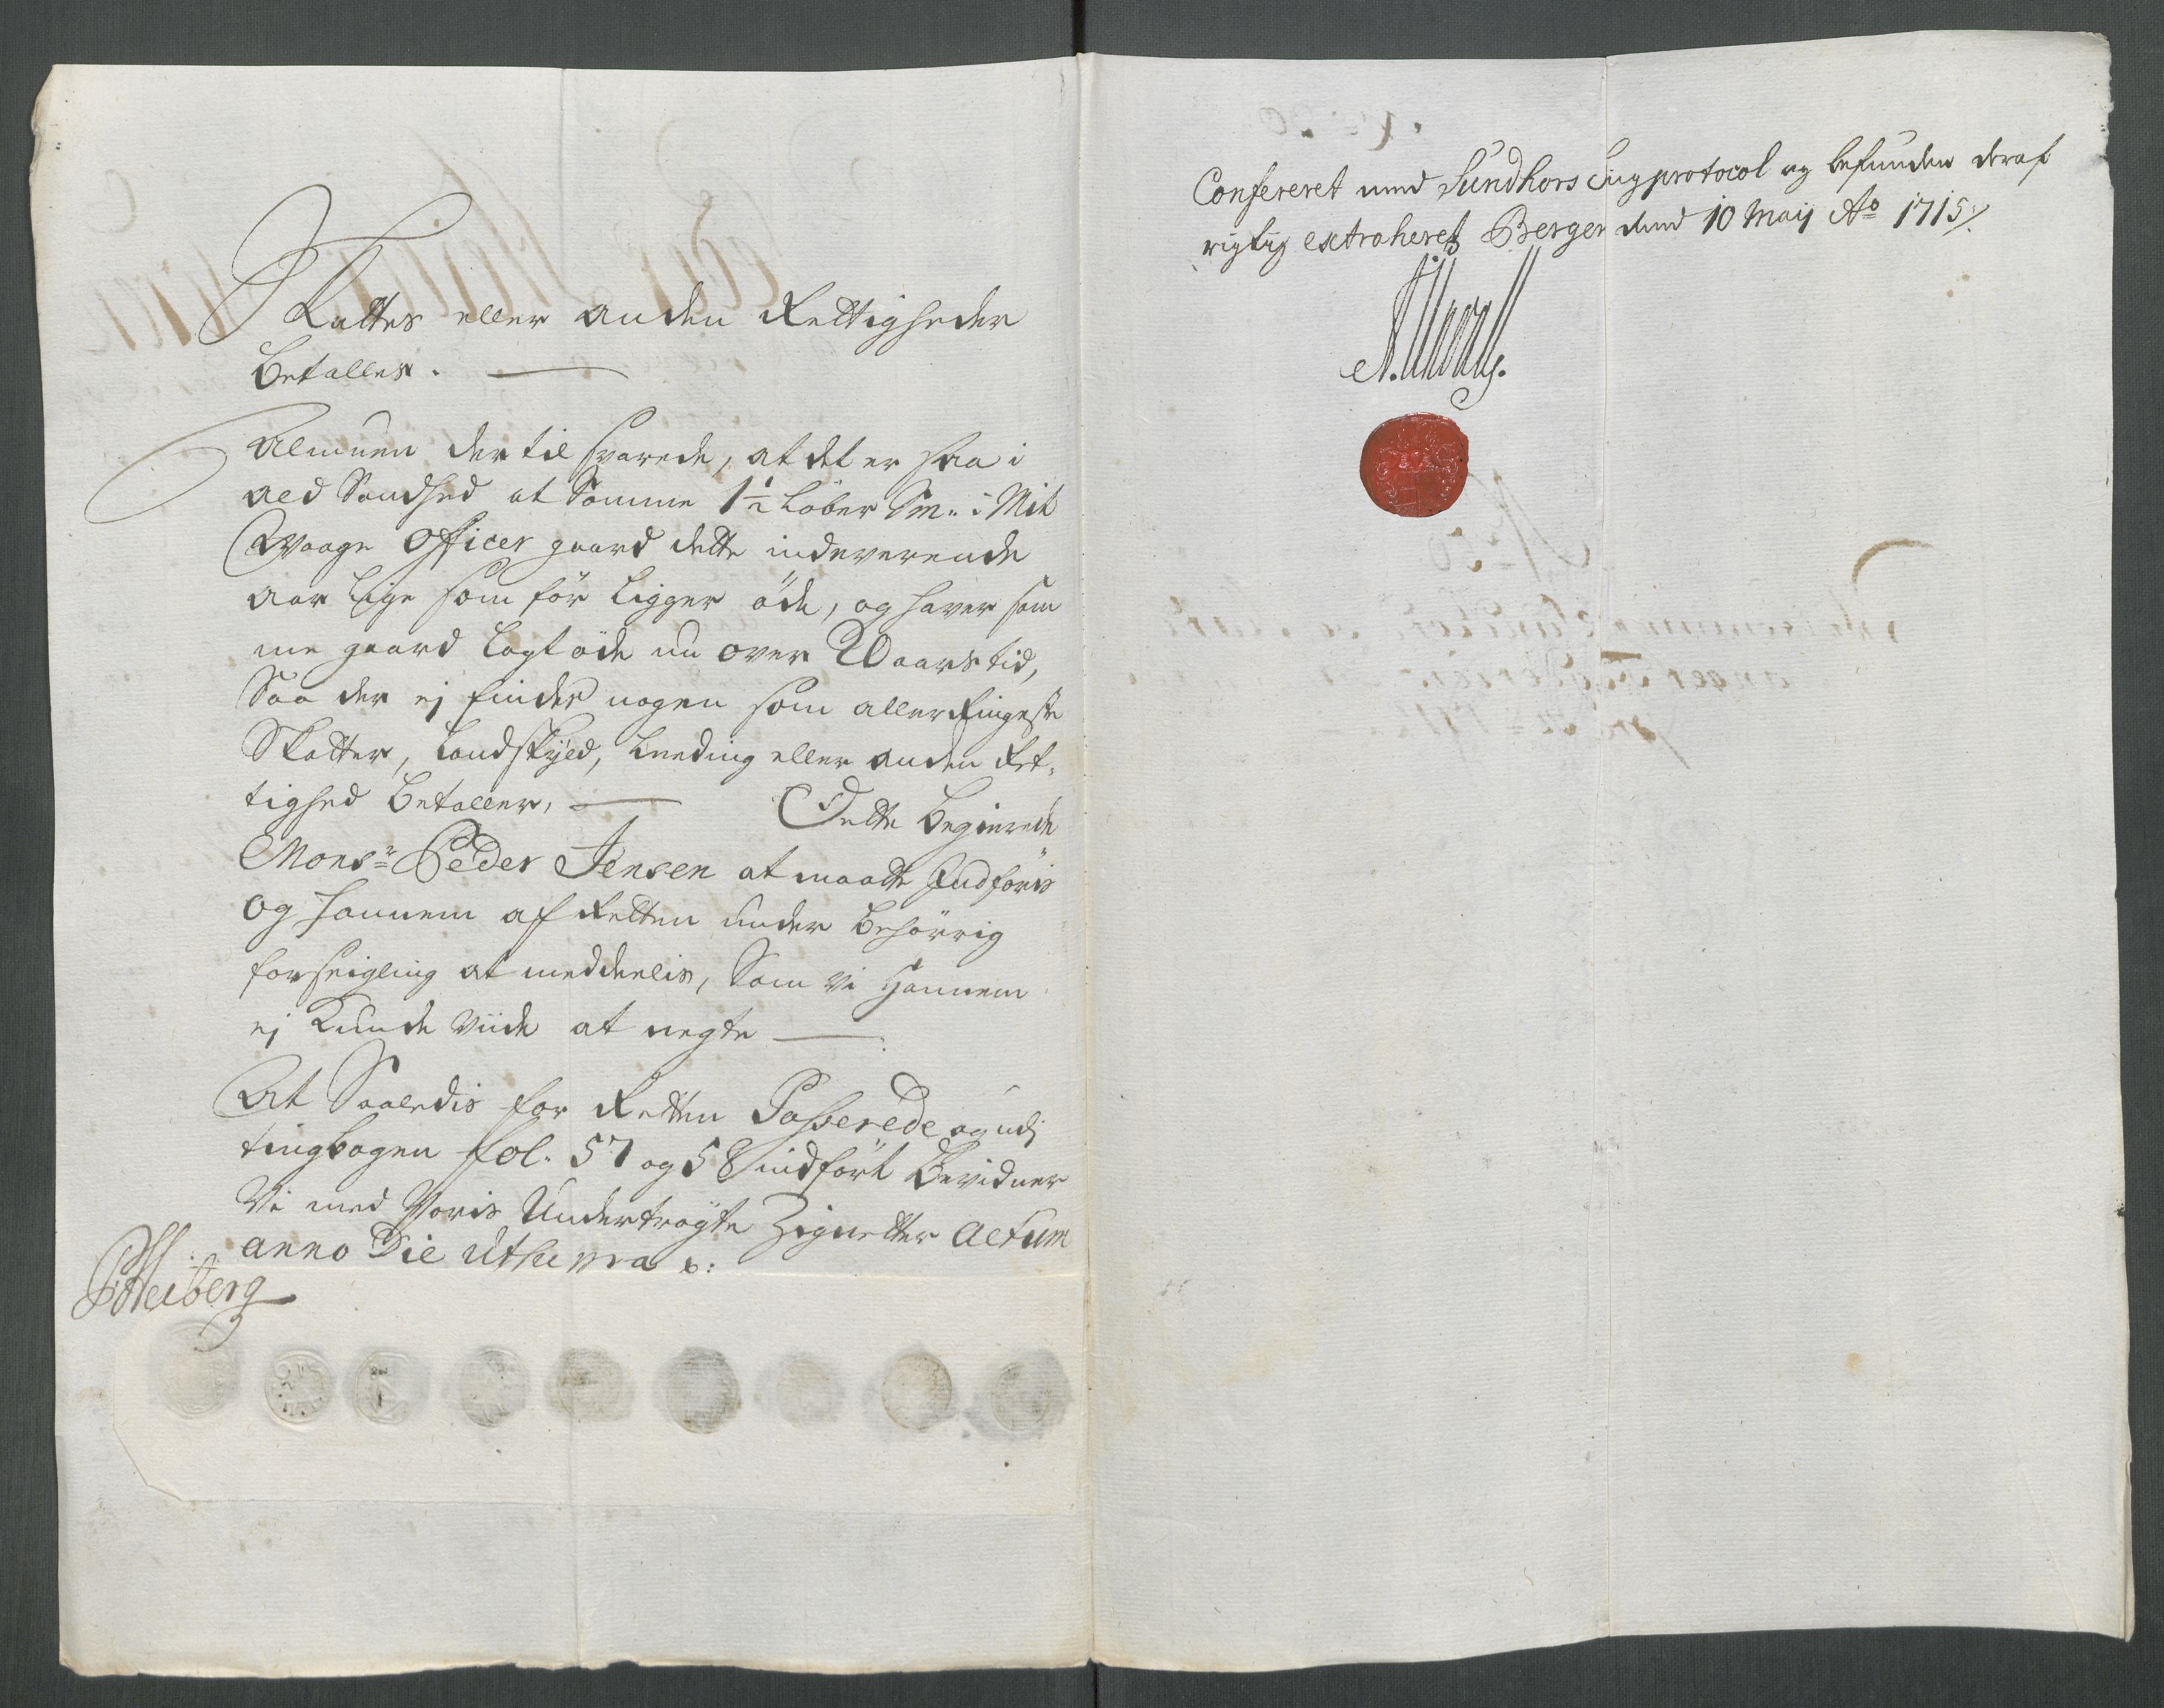 Skattes eller anden Rettigheder
Betalles.
Almuen der til svarede, at det er saa i
ald Sandhed at Somme 1½ Løber Sm: i Mit
Waage Officer gaard dette indeverende
aar lige som før ligger øde, og haver sam
me gaard lagt øde nu over 20 aars tid,
Saa der ej findes nogen som allerringeste
Skatter, Landskyld, Leeding eller anden Ret-
tighed Betaller, Dette Begierede
Monsr Peder Jensen at maatte Indføris
og hannem af Retten under Behørrig
forseigling at meddeelis, Som vi Hannem
ej Kunde viide at negte
At Saaledis for Retten Passerede og udj
tingbogen fol. 57 og 58 indført Bevidner
Vi med Voris Undertrøgte Zignetter Actum
anno Die Ut Supra
Heiberg
Confereret med Sundhors Tingprotocol og befunden deraf
rigtig extraheret Bergen dend 10 Maij Ao 1715